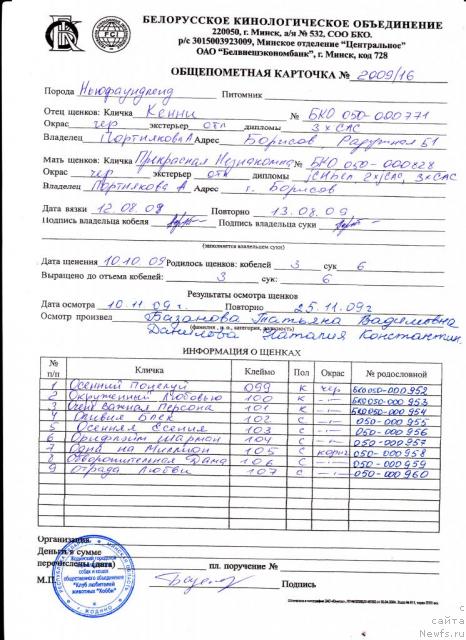 БЕЛОРУССКОЕ КИНОЛОГИЧЕСКОЕ ОБЪЕДИНЕНИЕ
220050, г. Минск, а/я № 532, СОО БКО.
р/с 3015003923009, Минское отделение "Центральное"
ОАО "Белвнешэкономбанк", г. Минск, код 728
FCI
ОБЩЕПОМЕТНАЯ КАРТОЧКА № 2009/16
Порода Ньюфаундленд Питомник
Отец щенков: Кличка Кенни № БКО 050-000771
Окрас чер экстерьер отл дипломы 3хCAC
Владелец Портнякова А Адрес Борисов Радужная 51
Мать щенков: Кличка Прекрасная Незнакомка № БКО 050-000828
Окрас чер экстерьер отл дипломы 3хCAC
Владелец Портнякова А Адрес г. Борисов
Дата вязки 12.08.09 Повторно 13.08.09
Подпись владельца кобеля Подпись владельца суки
(заполняется владельцем суки)
Дата щенения 10.10.09 Родилось щенков: кобелей 3 сук 6
Выращено до отъема кобелей: 3 сук: 6
Результаты осмотра щенков
Дата осмотра 10.11.09г. Повторно 25.11.09г
Осмотр произвел Базанова Татьяна Вадимовна
Данилова Наталия Константин.
ИНФОРМАЦИЯ О ЩЕНКАХ
№ п/п Кличка Клеймо Пол Окрас № родословной
1 Осенний Поцелуй 099 К чер БКО 050-000952
2 Окруженный Любовью 100 К -"- БКО 050-000953
3 Очень Важная Персона 101 К -"- БКО 050-000954
4 Оливия Блек 102 С -"- 050-000955
5 Осенняя Есения 103 С -"- 050-000956
6 Орифлэйм Шарман 104 С -"- 050-000957
7 Одна на Миллион 105 С корич 050-000958
8 Обворожительная Дама 106 С -"- 050-000959
9 Отрада Любви 107 С -"- 050-000960
Организация
Деньги в сумме
перечислены (дата) пл. поручение №
М.П. Подпись
"Клуб любителей
животных "Хобби"
с
сайта
Newfs.ru